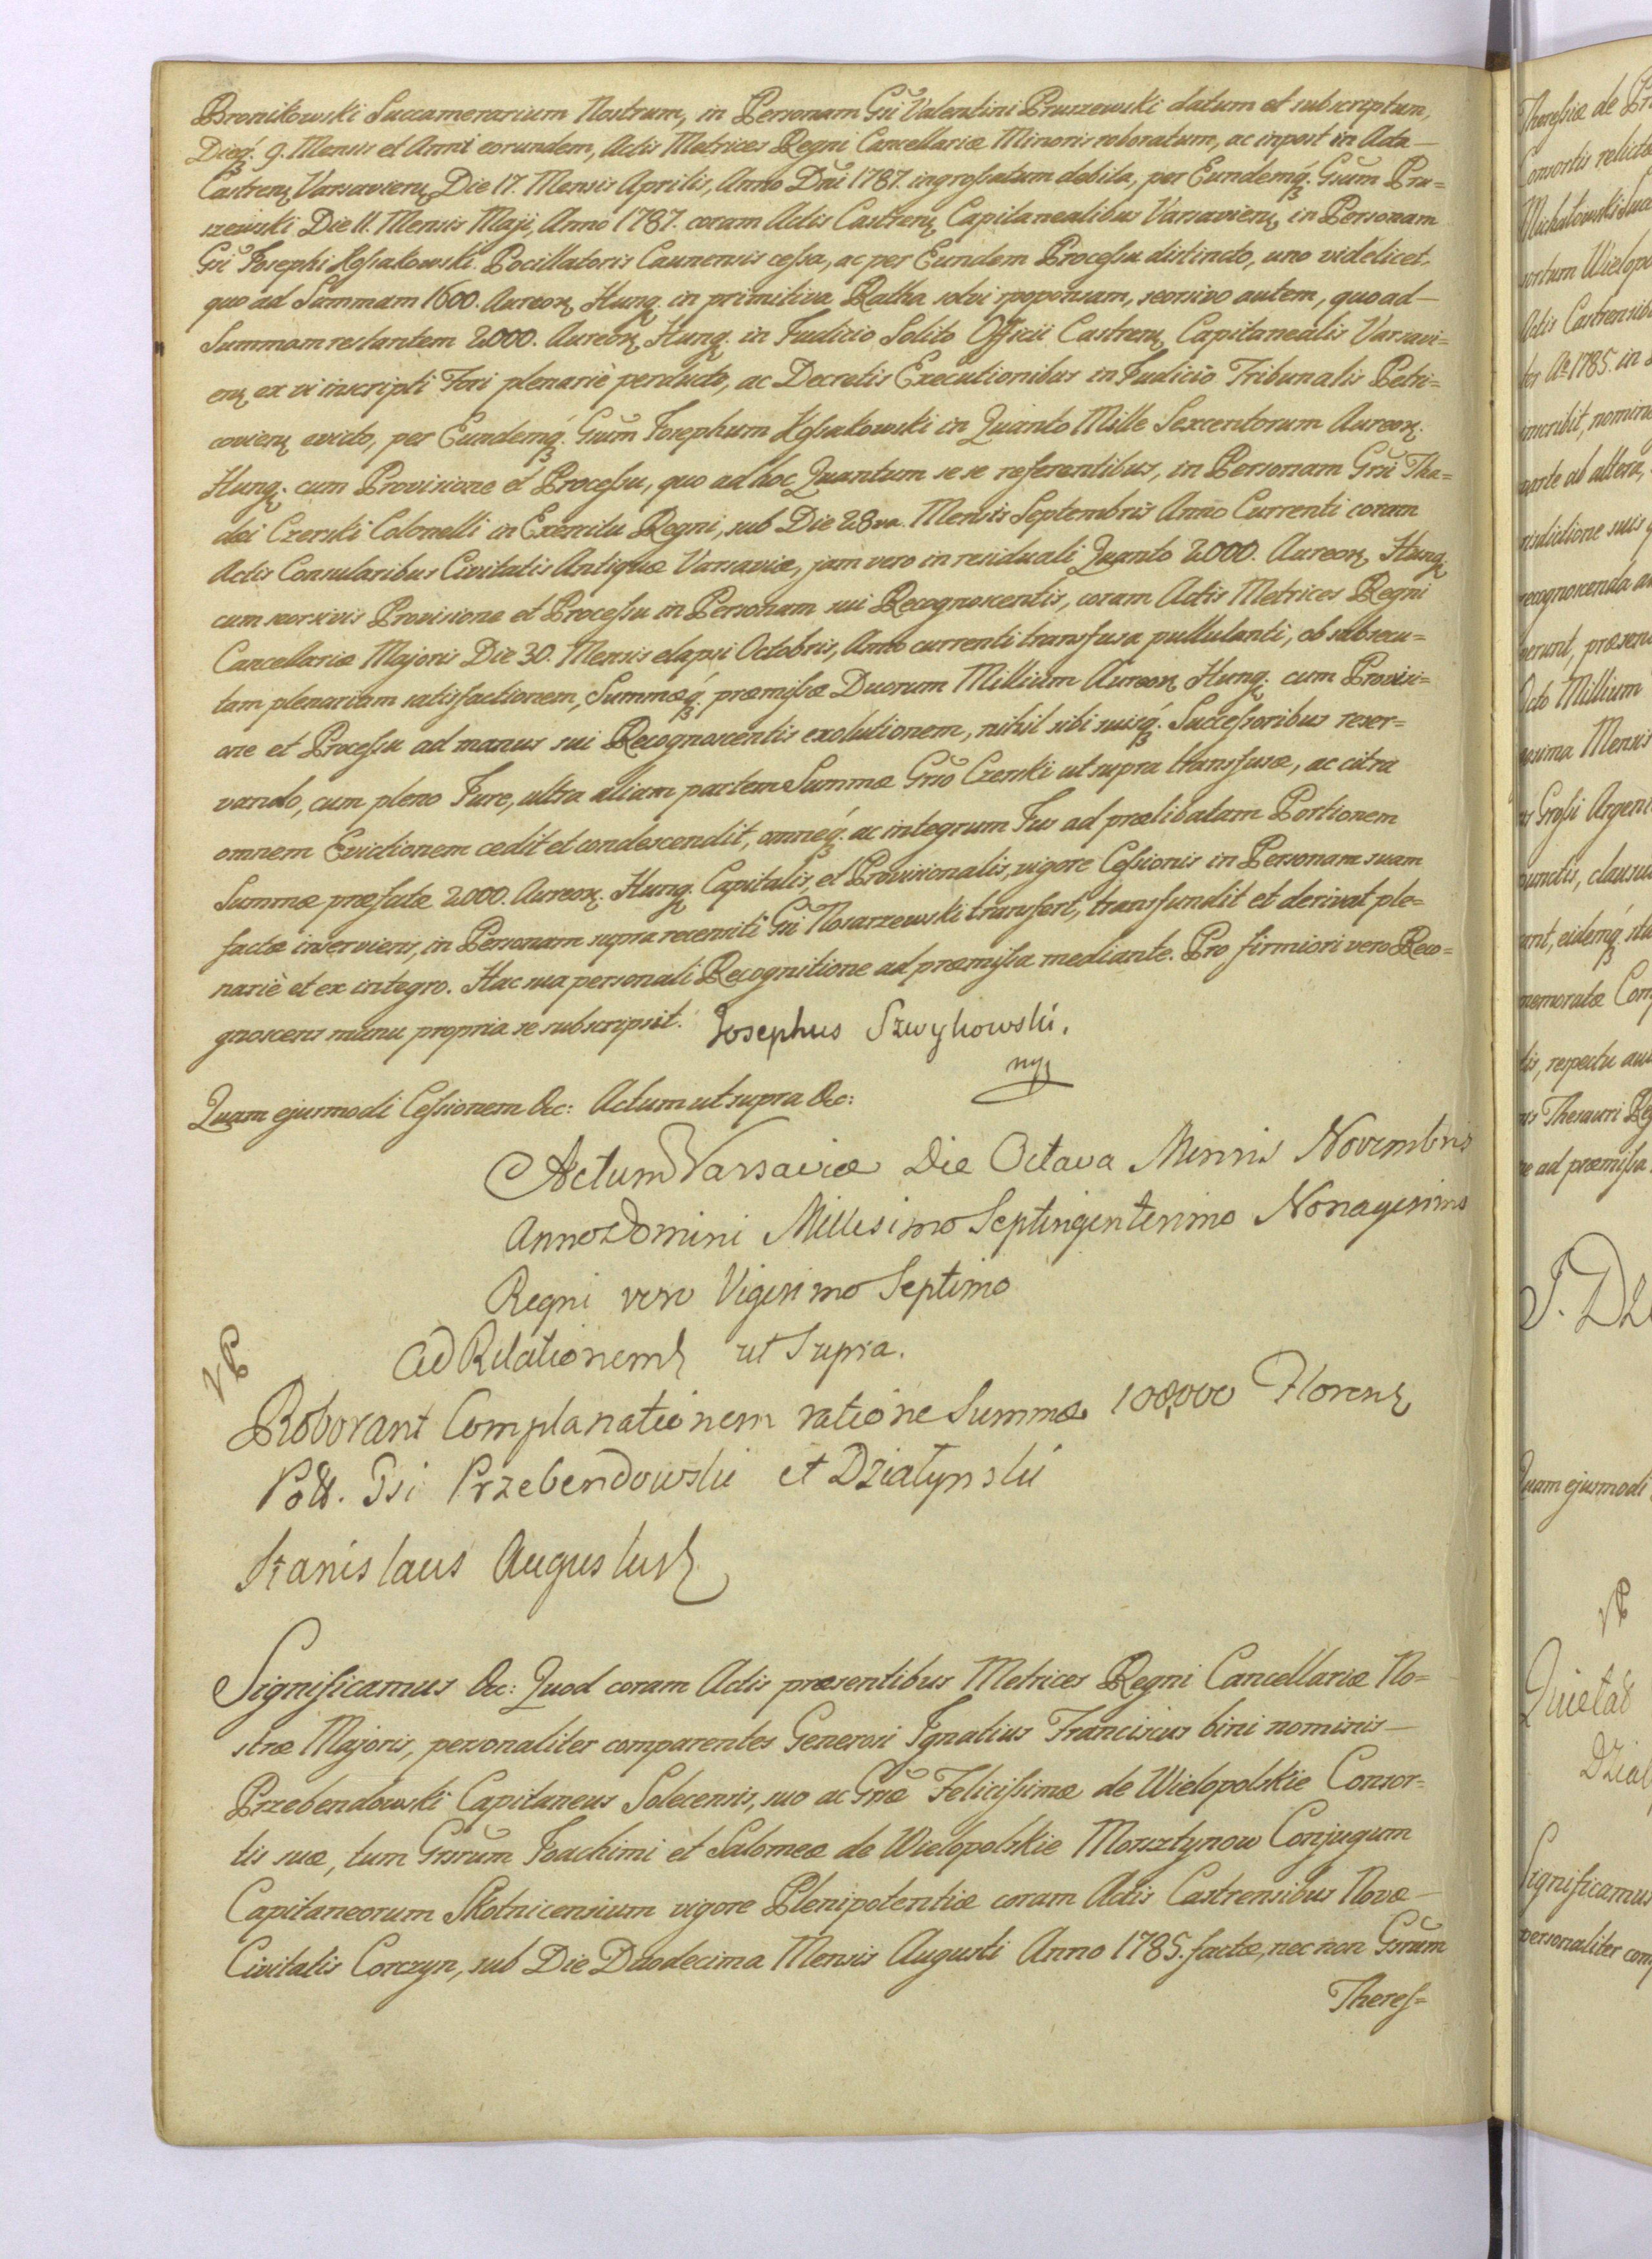 Bronikowski Succamerarium Nostrum, in Personam Gsi Valentini Pruszewski datum et subscriptum,
Dieq́ꝫ. 9. Mensis et Anni eorundem, Actis Metrices Regni Cancellariæ Minoris roboratum, ac inpost in Acta —
Castrenꝫ Varsavienꝫ Die 17. Mensis Aprilis, Anno Dni 1787. ingrossatum debita, per Eundemq́ꝫ. Gsum Pru=
szewski Die 11. Mensis Maji, Anno 1787. coram Actis Castrenꝫ Capitanealibus Varsavienꝫ in Personam
Gsi Josephi Kossakowski Pocillatoris Caunensis cessa, ac per Eundem Processu distincto, uno videlicet,
quo ad Summam 1600. Aureorꝫ Hungꝫ in primitiva Ratha solvi spoponsam, seorsivo autem, quo ad —
Summam restantem 2000. Aureorꝫ Hungꝫ. in Judicio Solito Officii Castrenꝫ Capitanealis Varsavi=
enꝫ ex vi inscripti Fori plenariè perducto, ac Decretis Executionibus in Judicio Tribunalis Petri=
covienꝫ evicto, per Eundemq́ꝫ. Gsum Josephum Kossakowski in Quanto Mille Sexcentorum Aureorꝫ.
Hungꝫ. cum Provisione et Processu, quo ad hoc Quantum se se referentibus, in Personam Gsi Tha=
dei Czerski Colonelli in Exercitu Regni, sub Die 28va. Mensis Septembris Anno Currenti coram
Actis Consularibus Civitatis Antiquæ Varsaviæ, jam vero in residuali Quanto 2000. Aureorꝫ Hungꝫ
cum seorsivis Provisione et Processu in Personam sui Recognoscentis, coram Actis Metrices Regni
Cancellariæ Majoris Die 30. Mensis elapsi Octobris, Anno currenti transfusa pullulanti, ob subsecu=
tam plenariam satisfactionem, Summæq́ꝫ. præmissæ Duorum Millium Aureorꝫ Hungꝫ. cum Provisi=
one et Processu ad manus sui Recognoscentis exolutionem, nihil sibi suisq́ꝫ. Successoribus reser=
vando, cum pleno Jure, ultra aliam partem Summæ Gso Czerski ut supra transfusæ, ac citra
omnem Evictionem cedit et condescendit, omneq́ꝫ. ac integrum Jus ad prælibatam Portionem
Summæ præfatæ 2000. Aureorꝫ. Hungꝫ. Capitalis, et Provisionalis, vigore Cessionis in Personam suam
factæ inserviens, in Personam supra recensiti Gsi Nosarzewski transfert, transfundit et derivat ple=
nariè et ex integro. Hac sua personali Recognitione ad præmissa mediante. Pro firmiori vero Reco=
gnoscens manu propria se subscripsit. Josephus Szwykowski.
mp
Quam ejusmodi Cessionem &c: Actum ut supra &c:
Actum Varsaviæ Die Octava Mensis Novembris
Anno Domini Millesimo Septingentesimo Nonagesimo
Regni vero Vigesimo Septimo
Ad Relationem ut Supra.
Roborant Complanationem ratione Summæ 108,000 Florenꝫ
Poll. Gsi Przebendowski et Działynski
Stanislaus Augustus
Significamus &c: Quod coram Actis præsentibus Metrices Regni Cancellariæ No=
stræ Majoris, personaliter comparentes Generosi Ignatius Franciscus bini nominis —
Przebendowski Capitaneus Solecensis, suo ac Gsæ Felicissimæ de Wielopolskie Consor=
tis suæ, tum Gsrum Joachimi et Salomeæ de Wielopolskie Morsztynow Conjugum
Capitaneorum Skotnicensium vigore Plenipotentiæ coram Actis Castrensibus Novæ —
Civitatis Corczyn, sub Die Duodecima Mensis Augusti Anno 1785. factæ, nec non Gsrum
Theress=